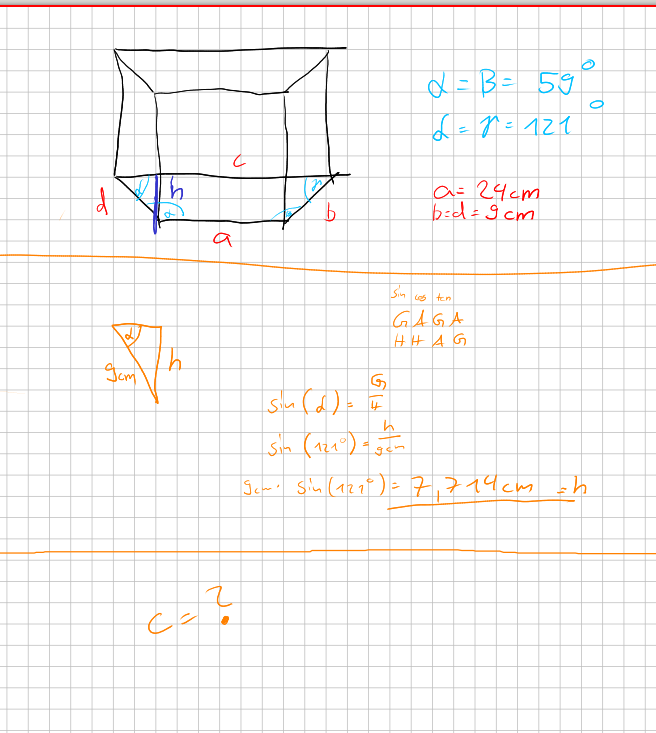 α = B = 59°
δ = γ = 121°
c
d
δ
h
γ
α
b
a
a = 24cm
b=d = 9cm
sin cos tan
G A G A
H H A G
α
9cm
h
sin(α) = G/H
sin(121°) = h/9cm
9cm · sin(121°) = 7,714cm = h
c = ?